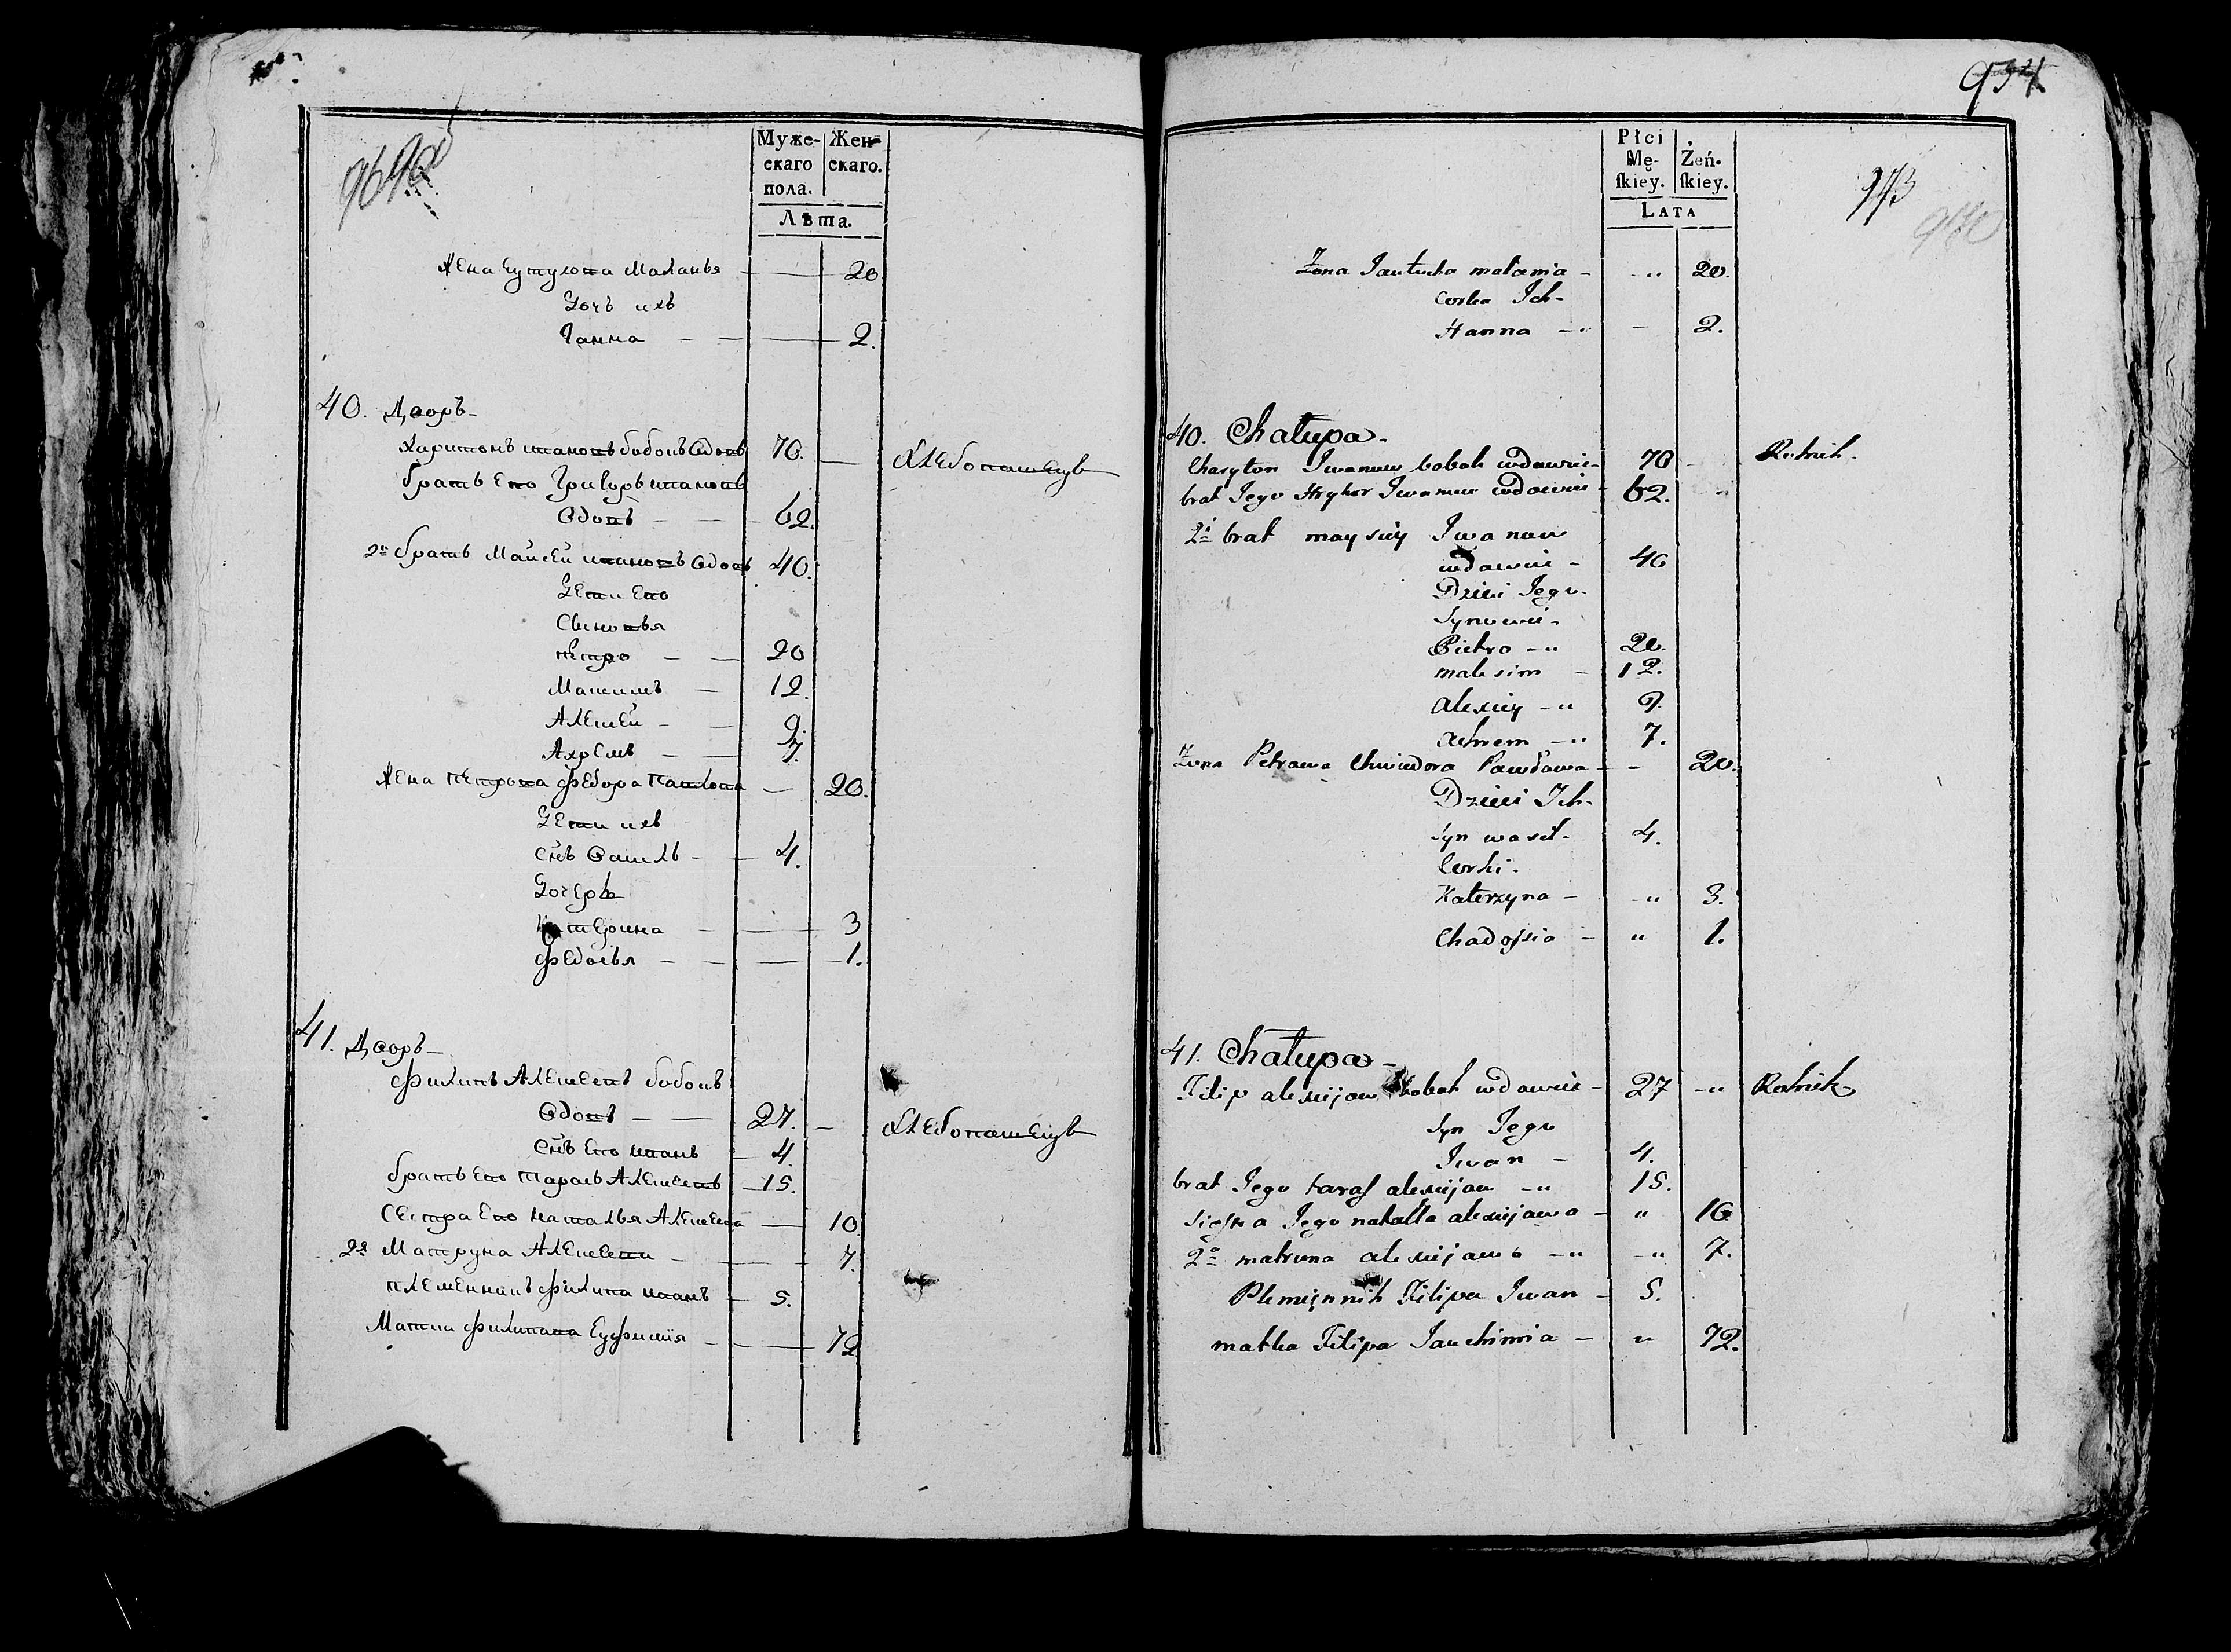 Муже-
скаго
пола.
Жен-
скаго.
Лѣта.
Жена Еутухова Маланья — — 20
Дочь ихъ
Ганна — — 2.
40. Дворъ
Харитонъ ивановъ бобокъ вдовъ 70. — хлебопашецъ
братъ Его Григоръ ивановъ
вдовъ — — 62.
2й братъ Майсей ивановъ вдовъ 40.
Дети Его
Сыновья
петро — — 20
Максимъ — 12.
Алексей — — 9.
Ахремъ — — 7.
Жена петрова федора павлова — 20.
Дети ихъ
Снъ Василь — — 4.
Дочеръ
Катерина — — 3
федосья — — — 1.
41. Дворъ
филипъ Алексеевъ бобокъ
вдовъ — — 27. — хлебопашецъ
Снъ Его иванъ — 4.
братъ Его тарасъ Алексеевъ — 15.
Сестра Его наталья Алексеева — 10
2я Матруна Алексеева — — 7.
племенникъ филипа иванъ — 5.
Матка филипава Еуфимия — — 72
934
Płci
Mę-
ſkiey.
Żeń-
ſkiey.
LATA
943
940
Zona Jautucha malania — - " 20.
Corka Ich -
Hanna — " - 2.
40. Chałupa -
Charyton Iwanow bobok wdowiec - 70 - Rolnik.
brat Jego Hryhor Iwanow wdowiec - 62. "
2i brat maysiey Iwanow
wdowiec - 40
Dzieci Jego -
Synowie -
Pietro - " 20.
maksim - 12.
alexiey - " 9.
achrem - " 7.
Zona Petrawa Chwiedora Pawława - - 20.
Dzieci Ich -
Syn wasil - 4.
Corki -
Katerzyna - - " 3.
Chadossia - " 1.
41. Chałupa -
Filip alexiejow bobok wdowiec - 27 - " Rolnik
Syn Jego
Iwan - 4.
brat Jego taras alexiejow - " 15.
Siostra Jego natalla alexiejawa - " 10
2a matruna alexiejawa - " - " 7.
Plemięnnik Filipa Iwan - 5.
matka Filipa Jauchimia - " 72.